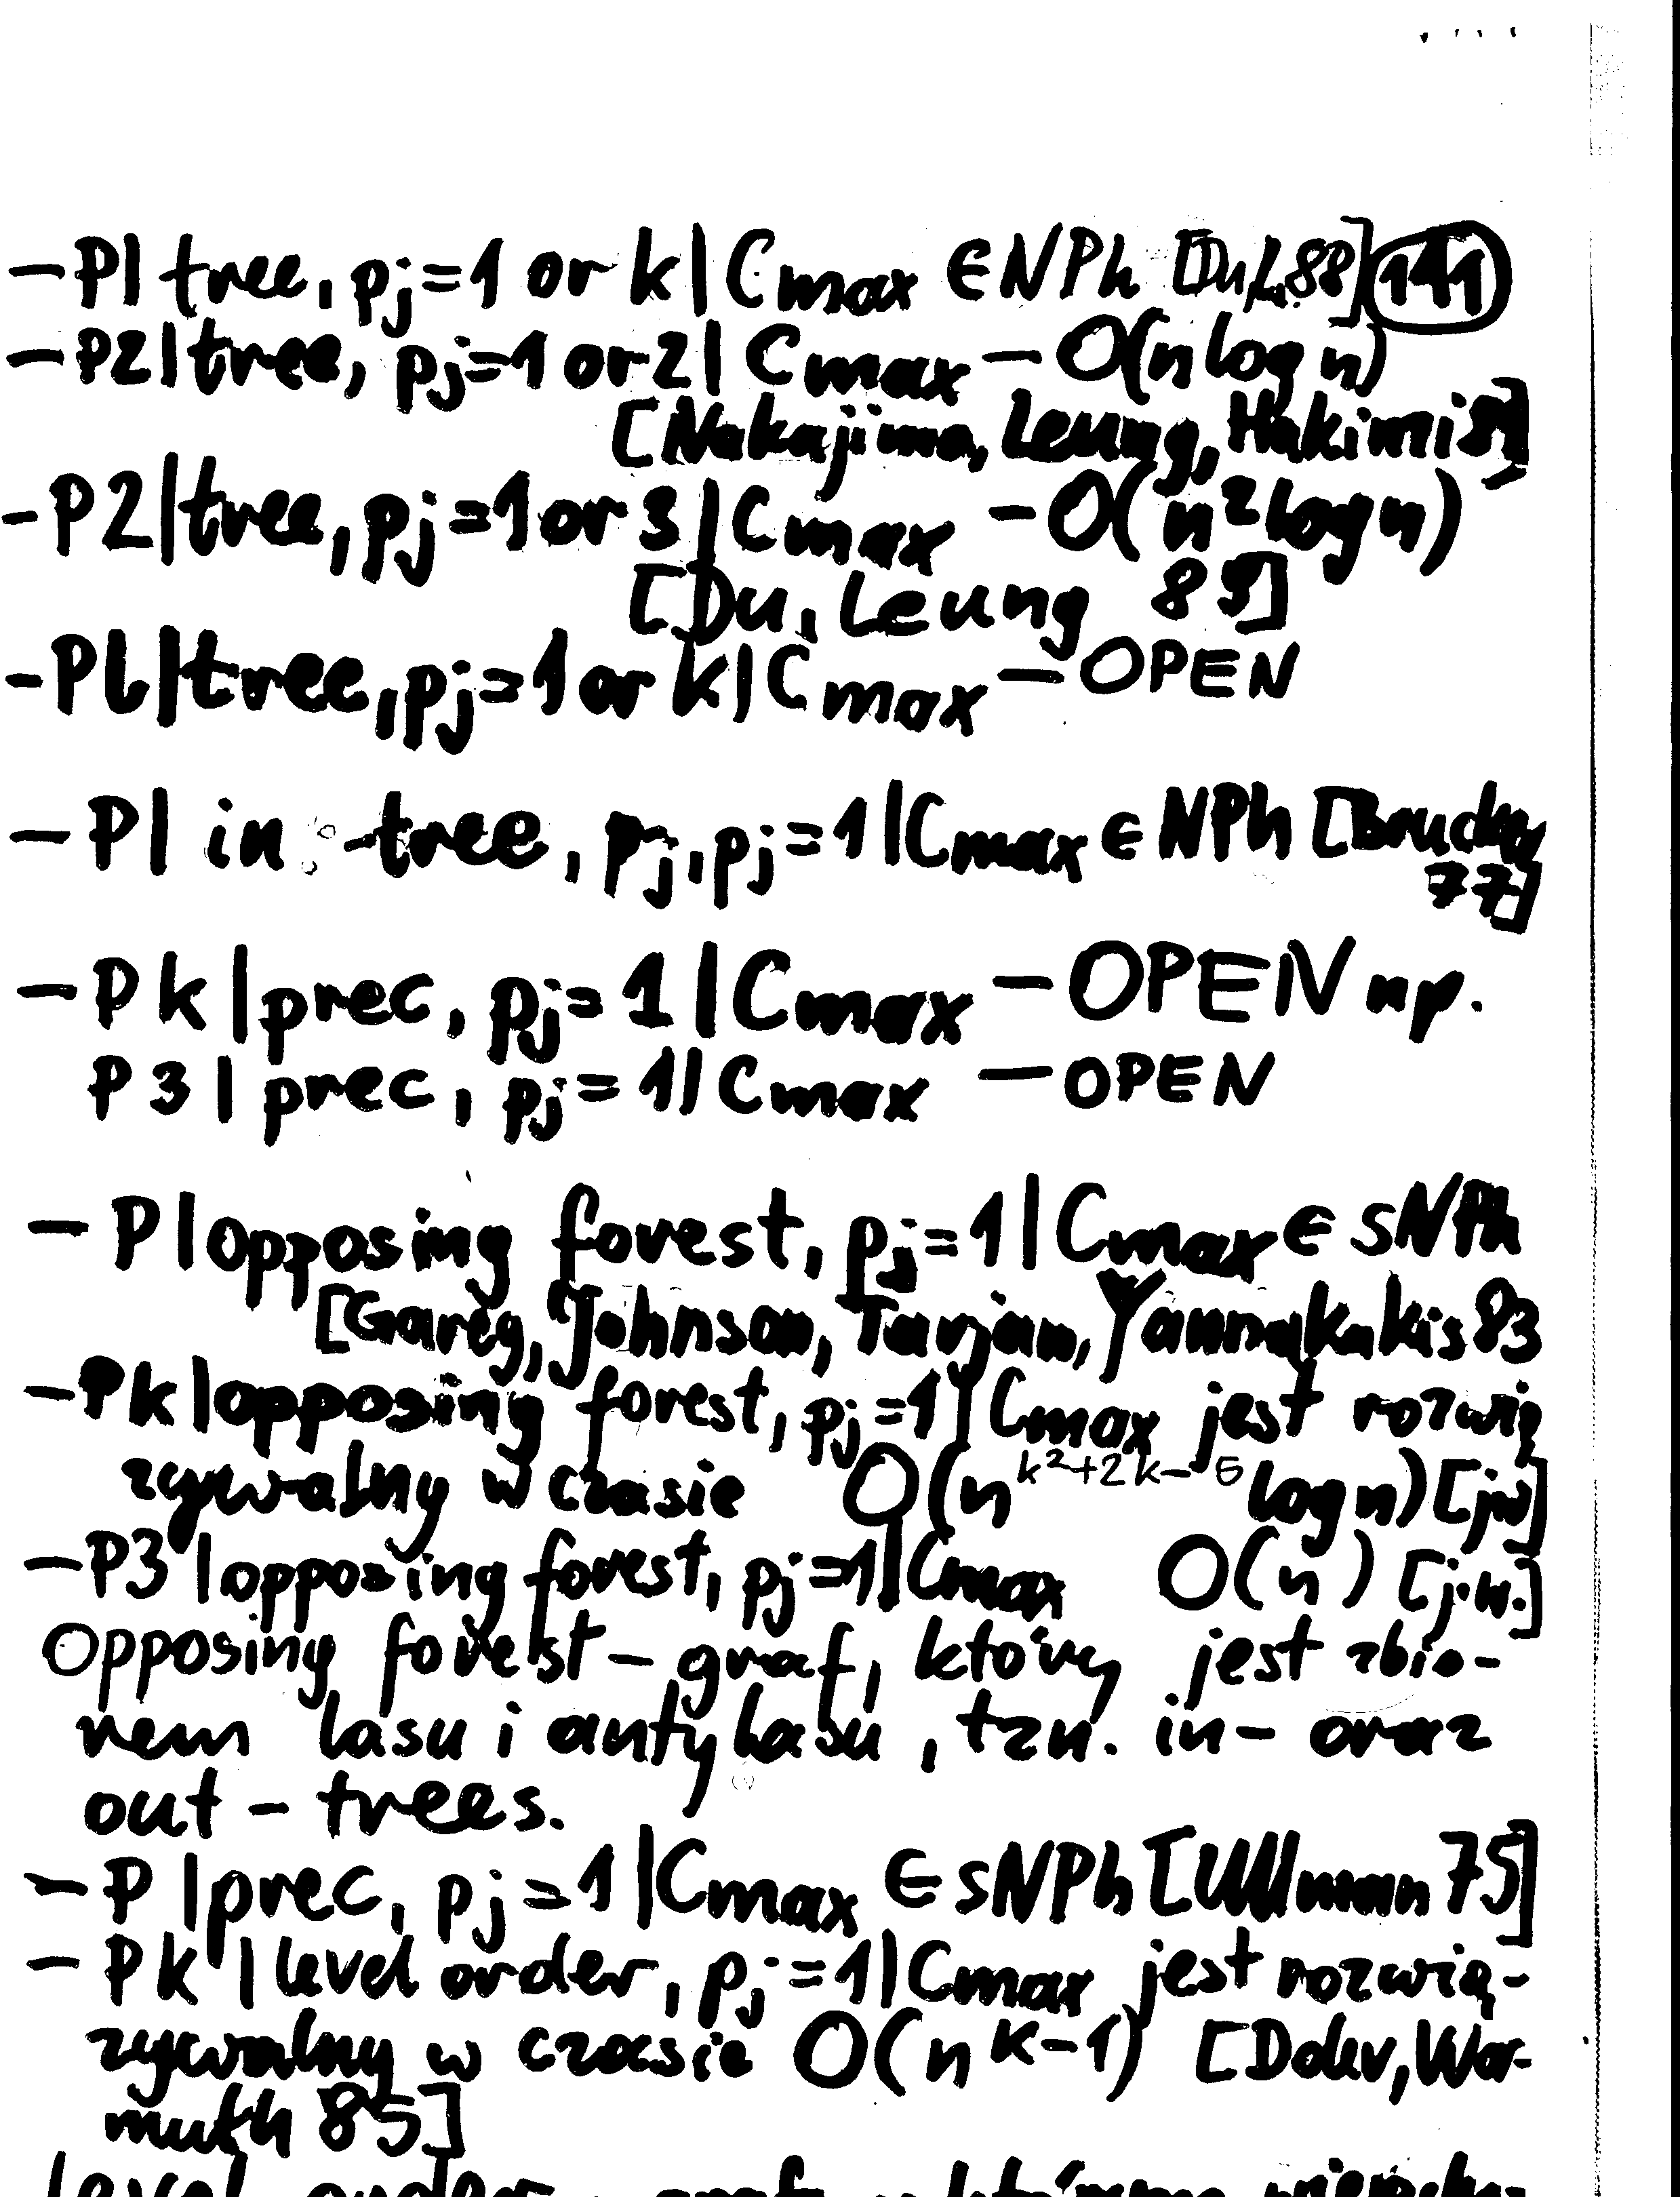 - P | tree, pj=1 or k | Cmax ∈ NPh [Du, L. 88] 141
- P2 | tree, pj=1 or 2 | Cmax - O(n log n)
[Nakajima, Leung, Hakimi 81]
- P2 | tree, pj=1 or 3 | Cmax - O(n² log n)
[Du, Leung 89]
- Pl | tree, pj=1 or k | Cmax - OPEN
- P | in-tree, rj, pj=1 | Cmax ∈ NPh [Brucker
77]
- Pk | prec, pj=1 | Cmax - OPEN np.
P3 | prec, pj=1 | Cmax - OPEN
- P | opposing forest, pj=1 | Cmax ∈ sNPh
[Garey, Johnson, Tarjan, Yannakakis 83
- Pk | opposing forest, pj=1 | Cmax jest rozwią
zywalny w czasie O(n^(k²+2k-5) log n) [jw]
- P3 | opposing forest, pj=1 | Cmax O(n) [j.w.]
Opposing forest - graf, który jest zbio-
rem lasu i antylasu, tzn. in- oraz
out-trees.
- P | prec, pj=1 | Cmax ∈ sNPh [Ullman 75]
- Pk | level order, pj=1 | Cmax jest rozwią-
zywalny w czasie O(n^(k-1)) [Dolev, War-
muth 85]
level order - graf w którym